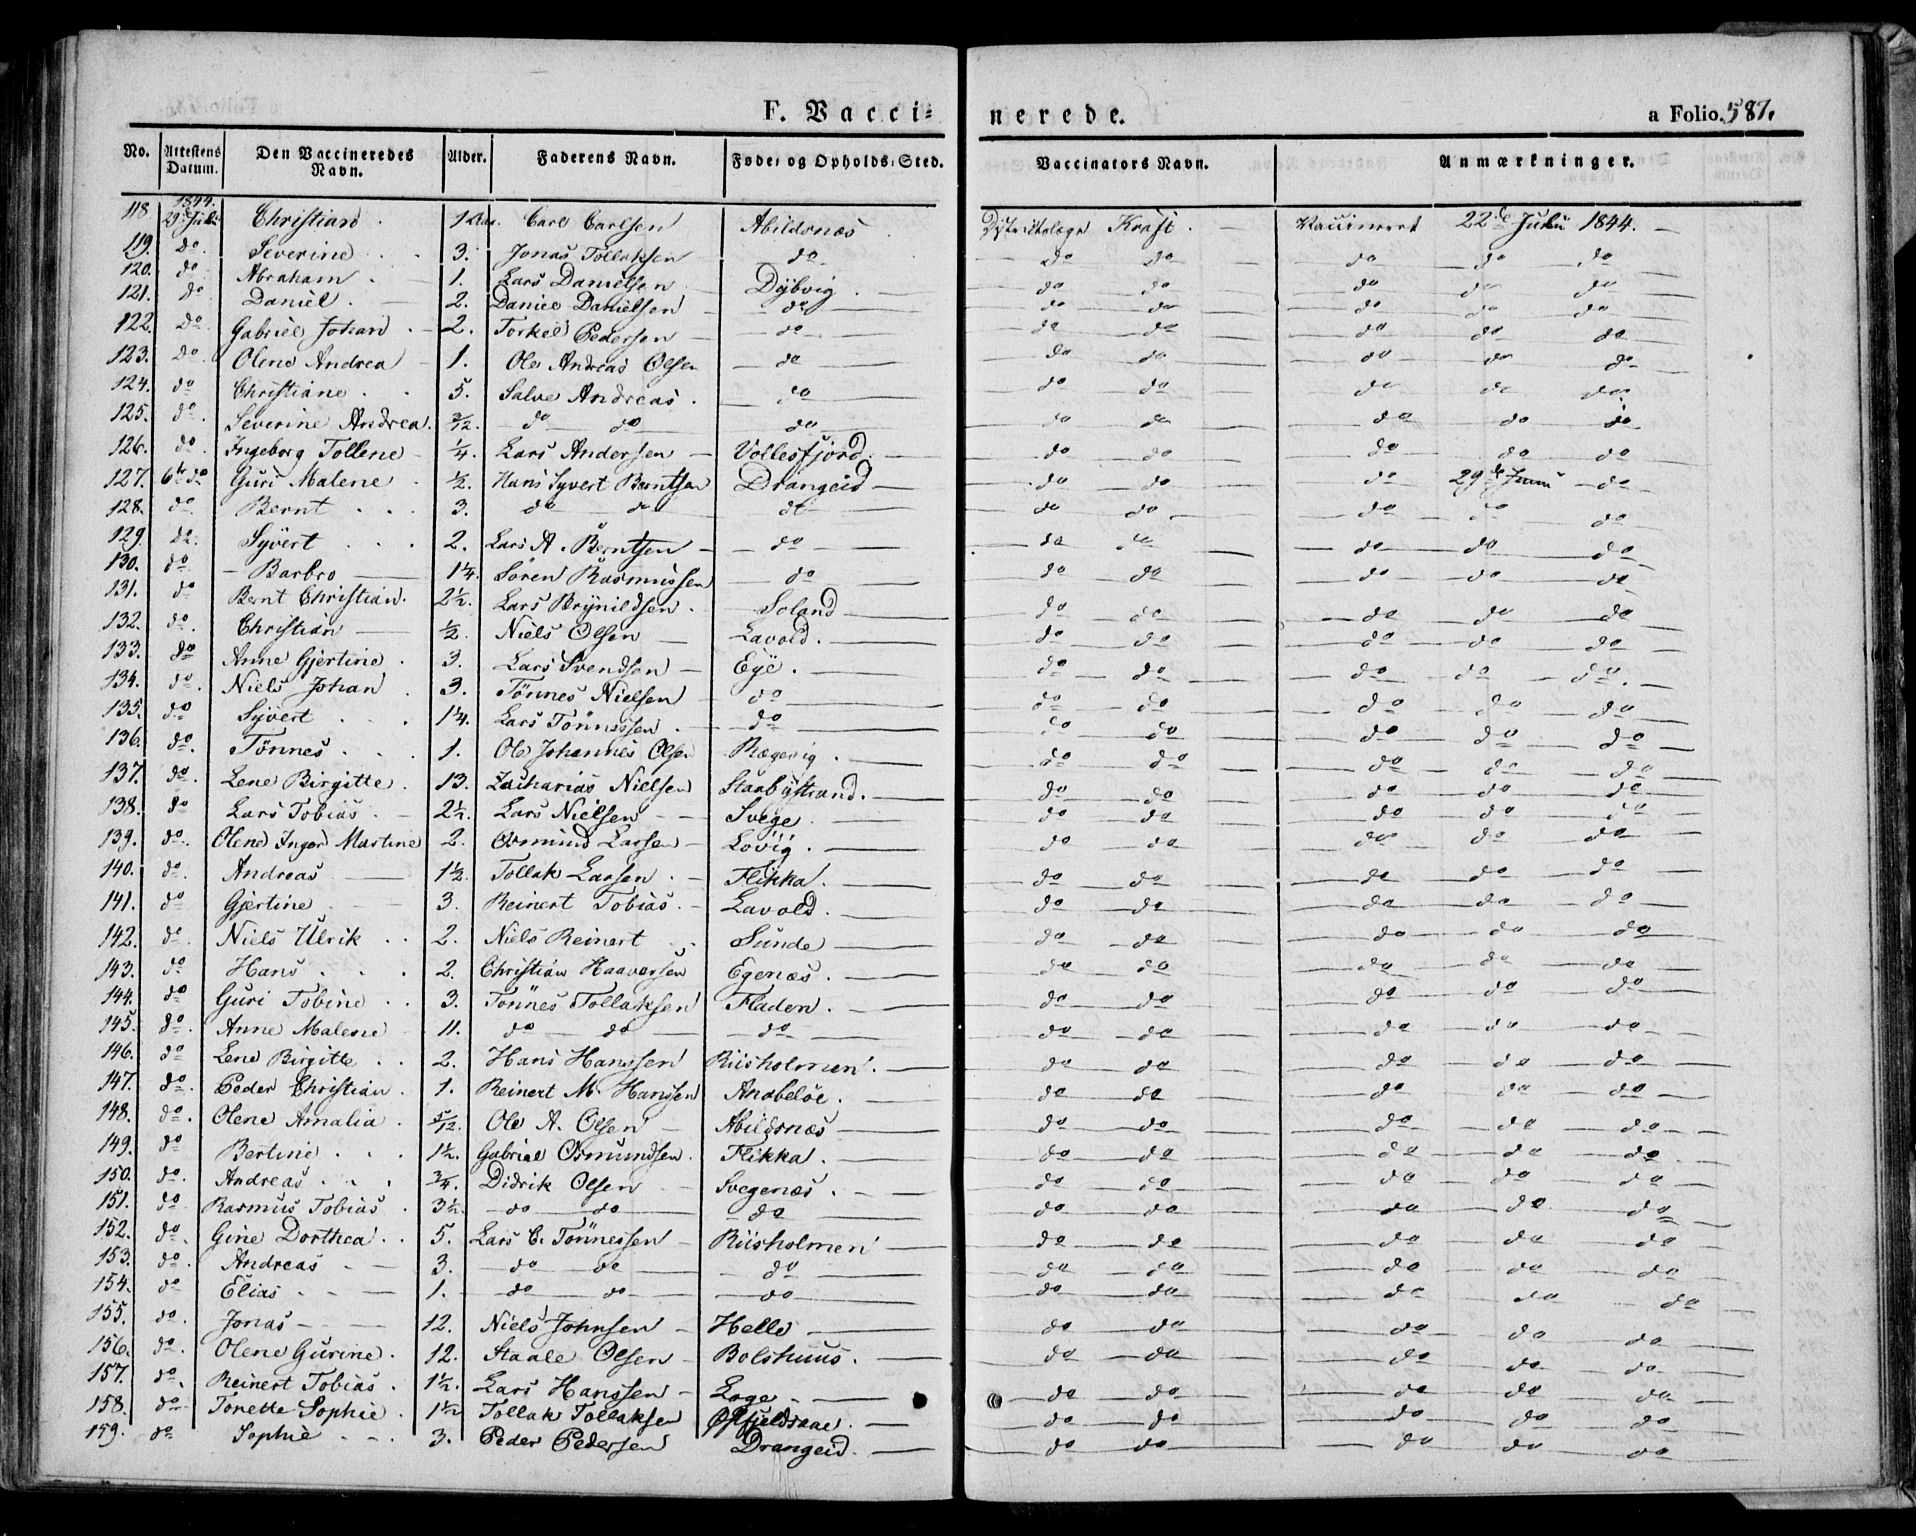 F. Vaccinerede.
a Folio 587.
No. | Attestens Datum. | Den Vaccineredes Navn. | Alder. | Faderens Navn. | Føde- og Opholds-Sted. | Vaccinators Navn. | Anmærkninger.
118 | 1844. 29de Juli | Christian | 1 Aar | Carl Carlsen | Abildsnæs | Districtslæge Kraft | Vaccineret 22de Juli 1844.
119. | do | Severine | 3. | Jonas Tollaksen | do | do do | do do do
120. | do | Abraham | 1. | Lars Danielsen | Dÿbvig | do do | do do do
121. | do | Daniel | 2. | Daniel Danielsen | do | do do | do do do
122. | do | Gabriel Johan | 2. | Torkel Pedersen | do | do do | do do do
123. | do | Olene Andrea | 1. | Ole Andreas Olsen | do | do do | do do do
124. | do | Christiane | 5. | Salve Andreas | do | do do | do do do
125. | do | Severine Andrea | 3/12. | do do | do | do do | do do do
126. | do | Ingeborg Tollene | 1/4. | Lars Andersen | Vollesfjord. | do do | do do do
127. | 6te do | Guri Malene | 1/2. | Hans Syvert Berntsen | Drangeid | do do | do 29de Juni do
128. | do | Bernt | 3. | do do | do | do do | do do do
129. | do | Syvert | 2. | Lars A. Berntsen | do | do do | do do do
130. | do | Barbro | 1 1/4. | Sören Rasmussen | do | do do | do do do
131. | do | Bernt Christian. | 2 1/2. | Lars Brÿnildsen | Soland | do do | do do do
132. | do | Christian | 1/2. | Niels Olsen | Lavold. | do do | do do do
133. | do | Anne Gjertine | 3. | Lars Svendsen | Eÿe. | do do | do do do
134. | do | Niels Johan | 3. | Tönnes Nielsen | do | do do | do do do
135. | do | Sÿvert | 1 1/4. | Lars Tönnessen | do | do do | do do do
136. | do | Tönnes | 1. | Ole Johannes Olsen | Rægevig | do do | do do do
137. | do | Lene Birgitte | 13. | Zacharias Nielsen | Staabÿstrand. | do do | do do do
138. | do | Lars Tobias | 2 1/2. | Lars Nielsen | Svege | do do | do do do
139. | do | Olene Inger Martine | 2. | Osmund Larsen | Lövig. | do do | do do do
140. | do | Andreas | 1 1/2. | Tollak Larsen | Flikka. | do do | do do do
141. | do | Gjertine | 3. | Reinert Tobias | Lavold. | do do | do do do
142. | do | Niels Ulrik | 2. | Niels Reinert | Sunde | do do | do do do
143. | do | Hans | 2. | Christian Haaversen | Egenæs. | do do | do do do
144. | do | Guri Tobine | 3. | Tönnes Tollaksen | Fladen. | do do | do do do
145. | do | Anne Malene | 11. | do do | do | do do | do do do
146. | do | Lene Birgitte | 2. | Hans Hanssen | Riisholmen. | do do | do do do
147. | do | Peder Christian | 1. | Reinert M. Hanssen | Anabelöe. | do do | do do do
148. | do | Olene Amalia | 5/12. | Ole A. Olsen | Abildsnæs | do do | do do do
149. | do | Bertine | 1 1/2. | Gabriel Osmundsen | Flikka. | do do | do do do
150. | do | Andreas | 3/4. | Didrik Olsen | Svegenæs. | do do | do do do
151. | do | Rasmus Tobias | 3 1/2. | do do | do | do do | do do do
152. | do | Gine Dorthea | 5. | Lars C. Tönnessen | Riisholmen | do do | do do do
153. | do | Andreas | 3. | do do | do | do do | do do do
154. | do | Elias | 1. | do do | do | do do | do do do
155. | do | Jonas | 12. | Niels Johnsen | Helle | do do | do do do
156. | do | Olene Gurine | 12. | Staale Olsen | Bolshuus. | do do | do do do
157. | do | Reinert Tobias | 1 1/2. | Lars Hanssen | Loge | do do | do do do
158. | do | Tonette Sophie | 1 1/2 | Tollak Tollaksen | | do do | do do do
159. | do | Sophie | 3. | Peder Pedersen | Drangeid. | do do | do do do